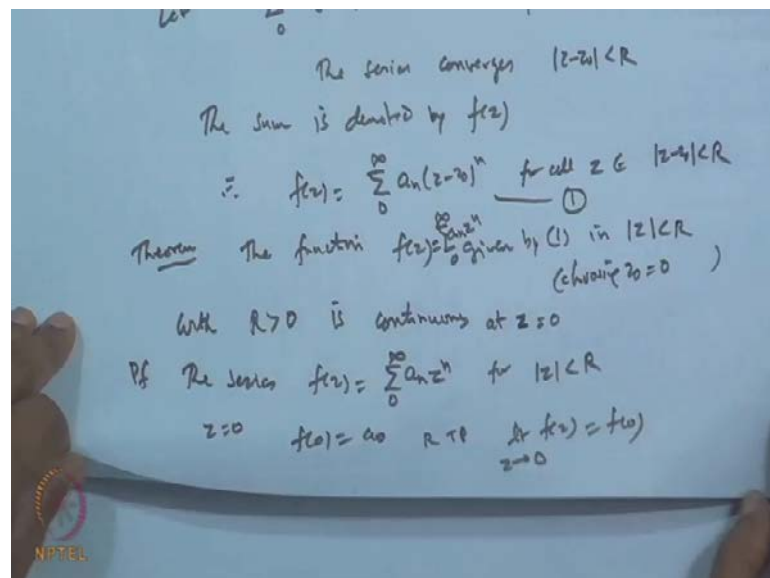 Let ∑ 0
The series converges |z-z0|<R
The sum is denoted by f(z)
∴ f(z) = ∞ ∑ 0 an(z-z0)^n for all z ∈ |z-z0|<R ——— ①
Theorem The function f(z) = ∞ ∑ 0 an z^n given by (1) in |z|<R
(choosing z0=0 )
with R>0 is continuous at z=0
Pf The series f(z) = ∞ ∑ 0 an z^n for |z|<R
z=0 f(0) = a0 R TP lt z→0 f(z) = f(0)
NPTEL